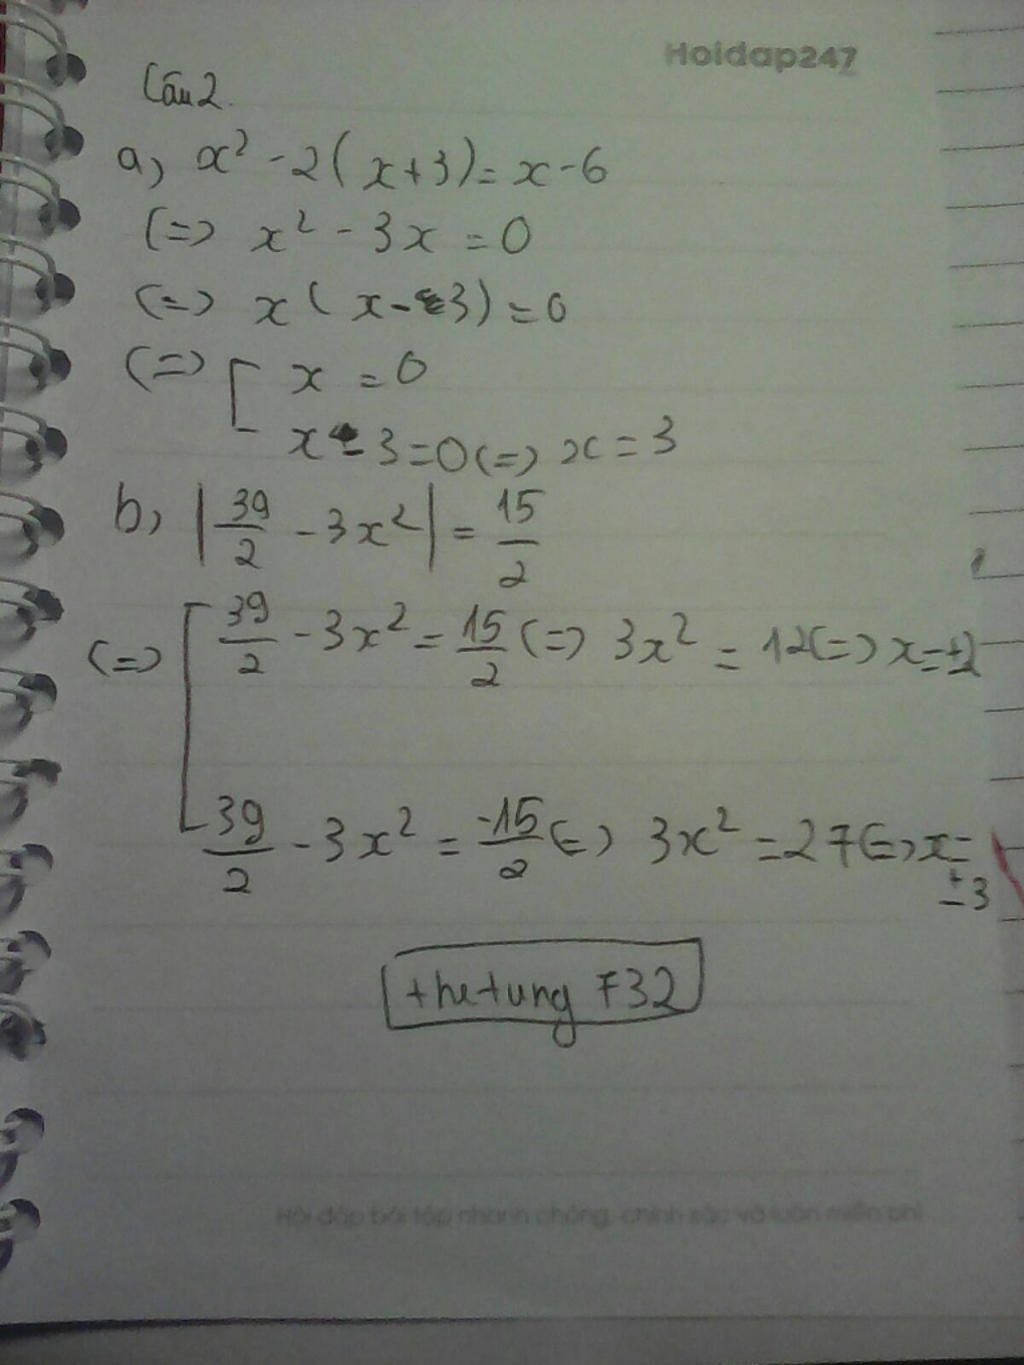 Hoidap247
Câu 2.
a, x² - 2(x+3) = x-6
(=) x² - 3x = 0
(=) x(x-3) = 0
(=) [ x = 0
x - 3 = 0 (=) x = 3
b, |39/2 - 3x²| = 15/2
(=) [ 39/2 - 3x² = 15/2 (=) 3x² = 12 (=) x = ±2
39/2 - 3x² = -15/2 (=) 3x² = 27 (=) x = ±3
thetung F32
Hỏi đáp bài tập nhanh chóng, chính xác và luôn miễn phí